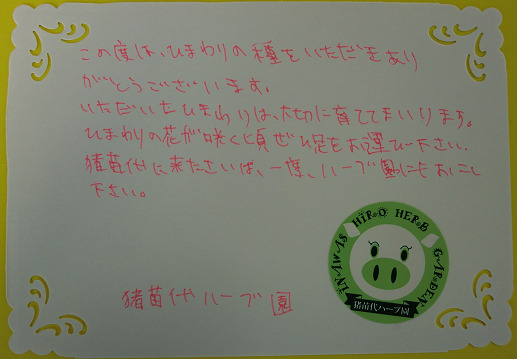 この度は、ひまわりの種をいただきあり
がとうございます。
いただいたひまわりは、大切に育ててまいります。
ひまわりの花が咲く頃ぜひ足をお運び下さい。
猪苗代に来たさいは、一度、ハーブ園にもおこし
下さい。
猪苗代ハーブ園
INAWASHIRO HERB GARDEN
猪苗代ハーブ園